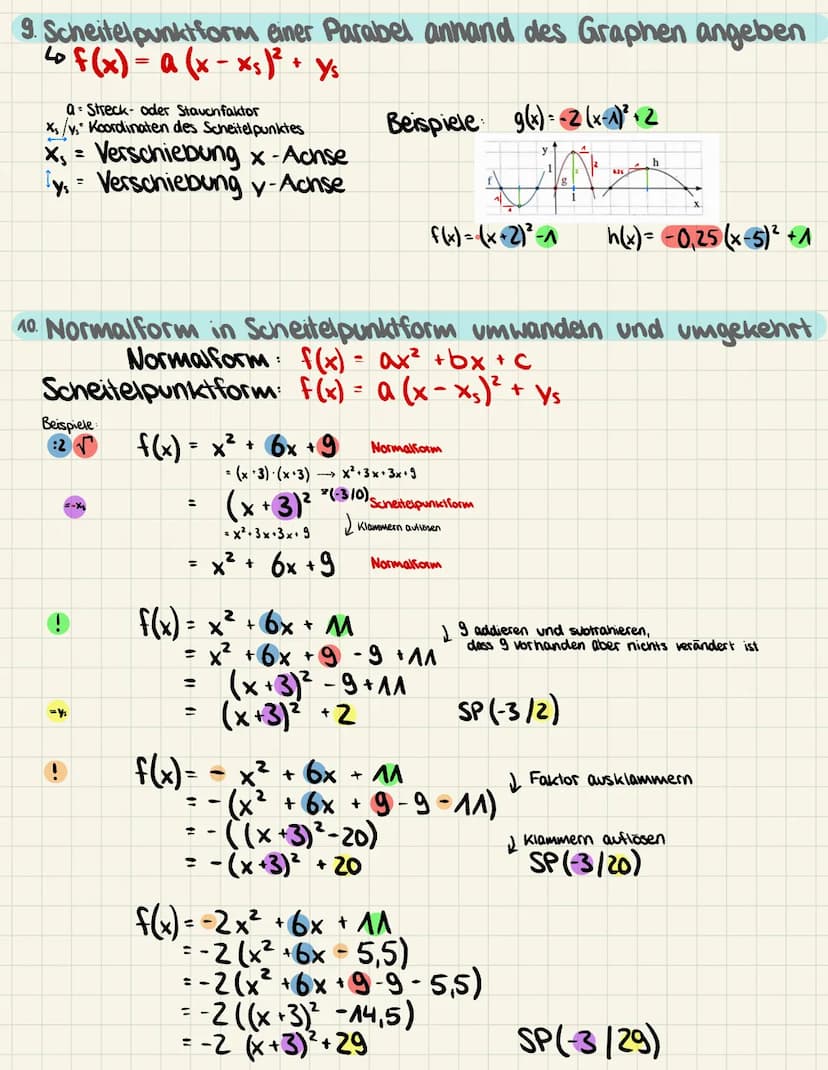 9. Scheitelpunktform einer Parabel anhand des Graphen angeben
↳ f(x) = a (x - xₛ)² + yₛ
a = Streck- oder Stauchfaktor
xₛ/yₛ = Koordinaten des Scheitelpunktes
xₛ = Verschiebung x-Achse
yₛ = Verschiebung y-Achse
Beispiele: g(x) = -2 (x-1)² + 2
y
f
1
g
2
h
1
x
f(x) = (x+2)² -1 h(x) = -0,25 (x-5)² +1
10. Normalform in Scheitelpunktform umwandeln und umgekehrt
Normalform: f(x) = ax² + bx + c
Scheitelpunktform: f(x) = a (x - xₛ)² + yₛ
Beispiele:
:2 √ f(x) = x² + 6x + 9 Normalform
= (x+3)·(x+3) → x²+3x+3x+9
=-xₛ = (x+3)² =(-3/0) Scheitelpunktform
= x²+3x+3x+9 ↓ Klammern auflösen
= x² + 6x + 9 Normalform
! f(x) = x² + 6x + 11 ↓ 9 addieren und subtrahieren,
dass 9 vorhanden aber nichts verändert ist
= x² + 6x + 9 - 9 + 11
= (x+3)² - 9 + 11
=yₛ = (x+3)² + 2 SP (-3/2)
! f(x) = - x² + 6x + 11 ↓ Faktor ausklammern
= - (x² + 6x + 9 - 9 - 11)
= - ((x+3)² - 20) ↓ Klammern auflösen
= - (x+3)² + 20 SP (-3/20)
f(x) = -2x² + 6x + 11
= -2 (x² + 6x - 5,5)
= -2 (x² + 6x + 9 - 9 - 5,5)
= -2 ((x+3)² - 14,5)
= -2 (x+3)² + 29 SP (-3/29)